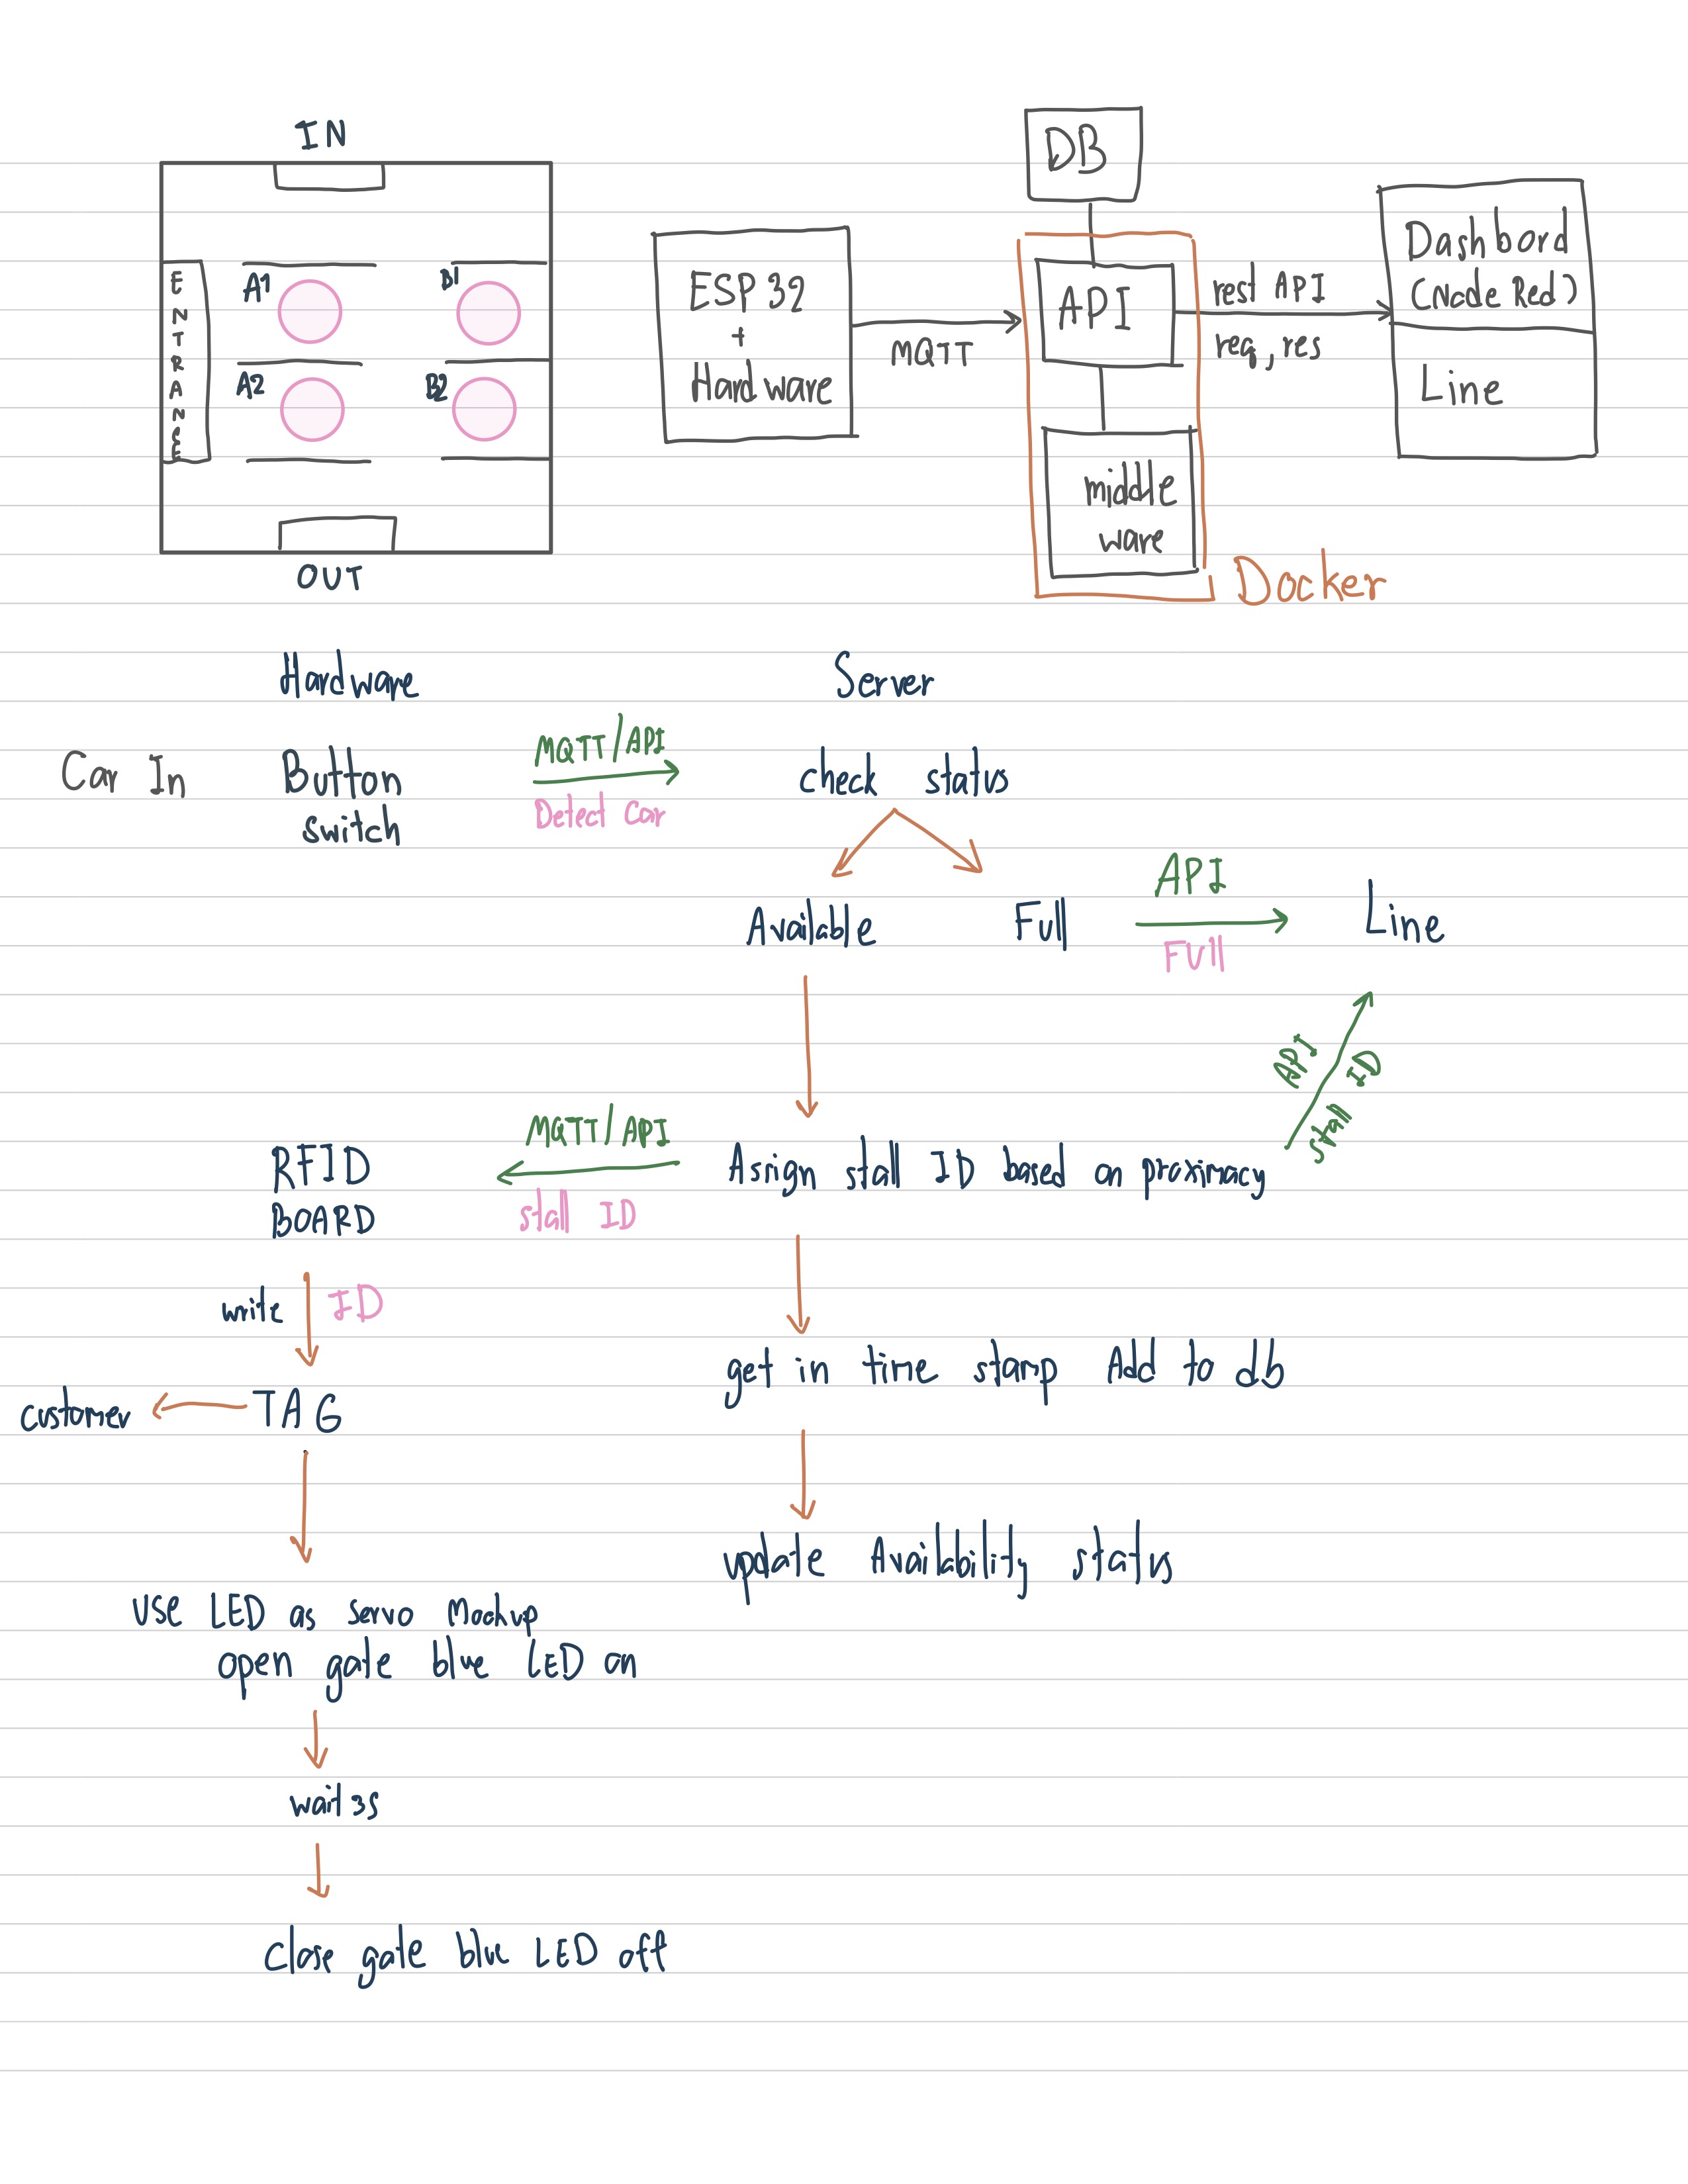 IN
ENTRANCE
A1
B1
A2
B2
OUT
ESP 32
+
Hardware
MQTT
DB
API
middle
ware
Docker
rest API
req, res
Dashbord
(Node Red)
Line
Hardware
Server
Car In
Button
switch
MQTT/API
Detect Car
check status
Available
Full
API
Full
Line
API
stall ID
RFID
BOARD
MQTT/API
stall ID
Assign stall ID based on proximacy
write
ID
get in time stamp Add to db
customer
TAG
update Availability status
use LED as servo Mockup
open gate blue LED on
wait 3s
Close gate blue LED off